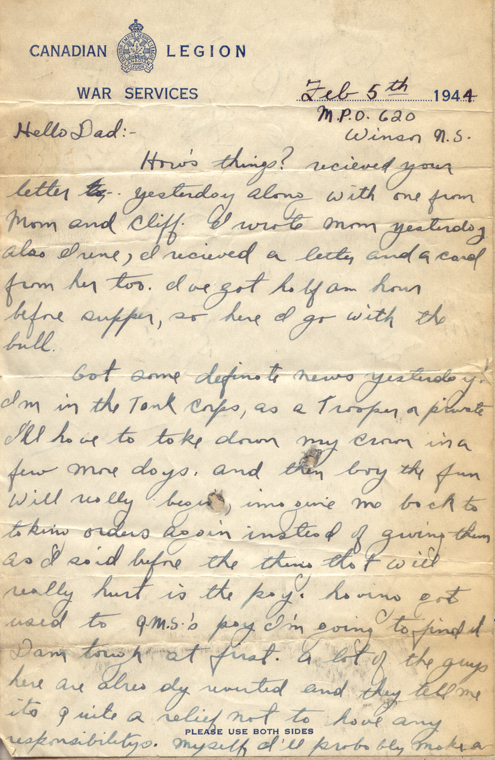 CANADIAN LEGION
WAR SERVICES
Feb 5th 1944
M.P.O. 620
Winsor N.S.
Hello Dad:-
How's things? recieved your
letter yesterday along with one from
Mom and Cliff. I wrote Mom yesterday
also Irene, I recieved a letter and a card
from her too. I've got half an hour
before supper, so here I go with the
bull.
Got some definate news yesterday.
I'm in the Tank corps, as a Trooper or private
I'll have to take down my crown in a
few more days. and then boy the fun
will really begin, imagine me back to
takin orders again instead of giving them
as I said before the thing that will
really hurt is the pay. having got
used to Q.M.S.'s pay I'm going to find it
Dam tough at first. a lot of the guys
here are already reverted and they tell me
its quite a relief not to have any
responsibilitys. Myself I'll probably make a
PLEASE USE BOTH SIDES